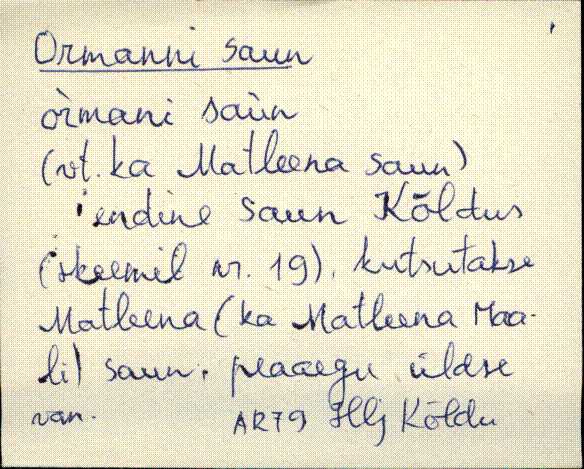 Ormanni saun
òrmani saùn
(vt. ka Matleena saun)
endine saun Kõldus
(skeemil nr. 19), kutsutakse
Matleena (ka Matleena Maa-
li) saun, peaaegu üldse
van. AR79 Hlj Kõldu